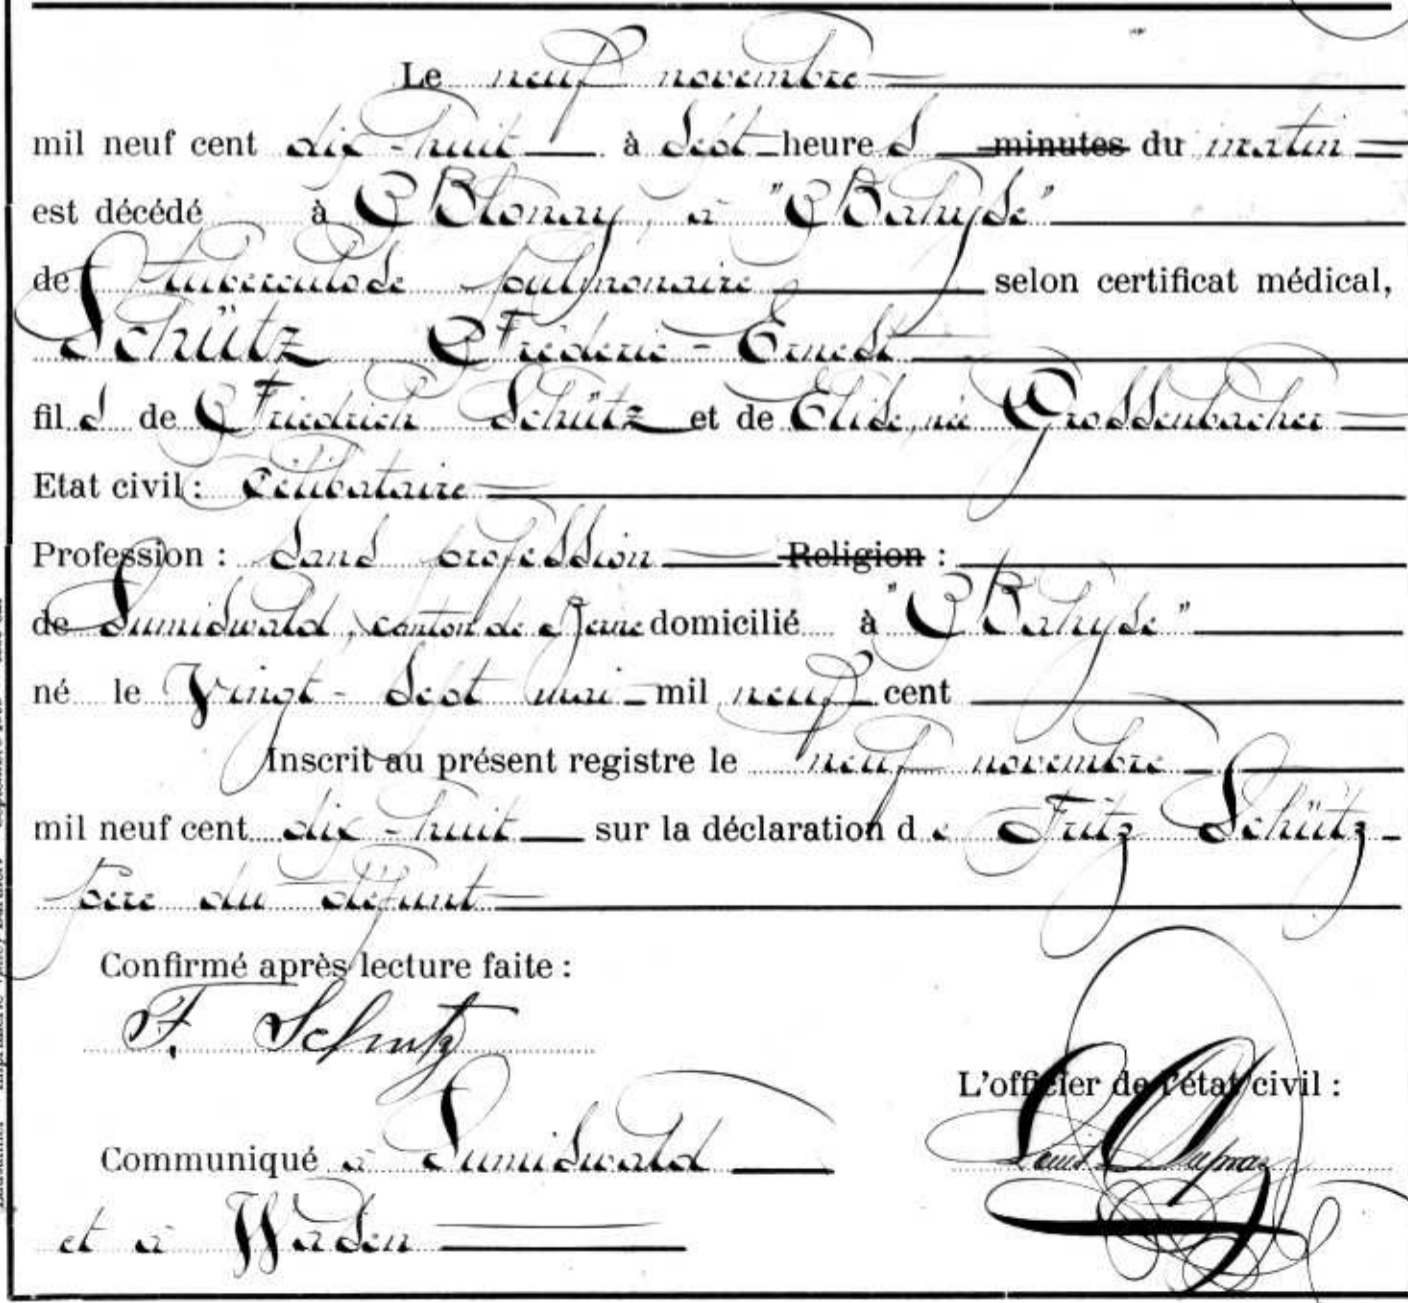 Le neuf novembre
mil neuf cent dix-huit à sept heures minutes du matin
est décédé à Blonay, à "Bahyse"
de tuberculose pulmonaire selon certificat médical,
Schütz Fréderic-Ernest
fils de Friedrich Schütz et de Elise, née Grossenbacher
Etat civil : Célibataire
Profession : sans profession Religion :
de Sumiswald, canton de Berne domicilié à "Bahyse"
né le Vingt-sept mai mil neuf cent
Inscrit au présent registre le neuf novembre
mil neuf cent dix-huit sur la déclaration de Fritz Schütz
père du défunt
Confirmé après lecture faite :
F. Schutz
L'officier de l'état civil :
Communiqué à Sumiswald
Louis
et à